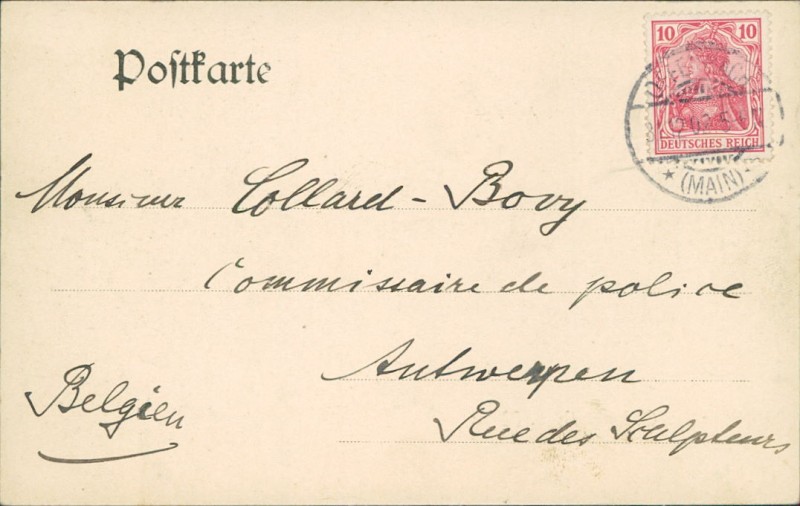 Postkarte
10 10
DEUTSCHES REICH
★ (MAIN)
Monsieur Collard - Bovy
Commissaire de police
Antwerpen
Belgien
Rue des Sculpteurs